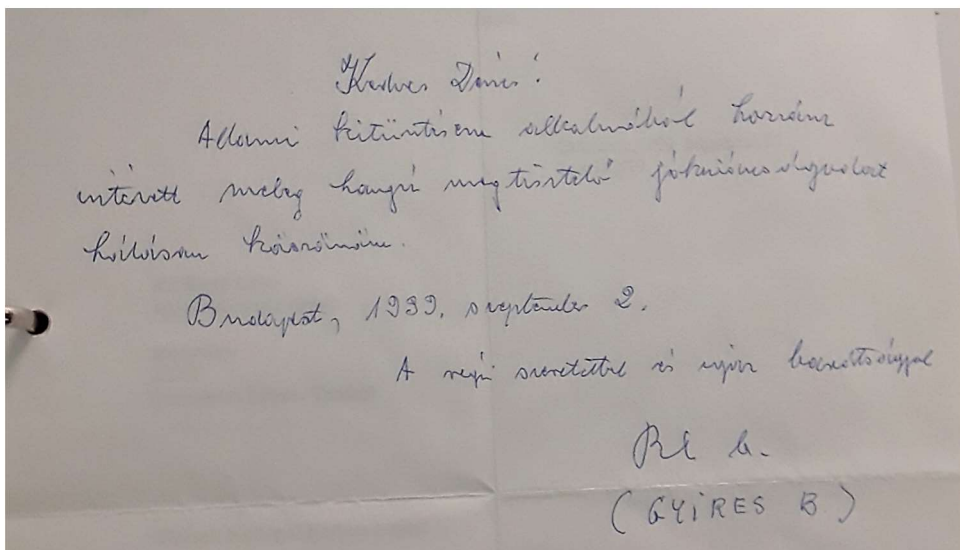 Kedves Dénes!
Állami kitüntetésem alkalmából hozzám
intézett meleg hangú megtisztelő jókívánságodat
hálásan köszönöm.
Budapest, 1999. szeptember 2.
A régi szeretettel és igaz barátsággal
(GYIRES B)